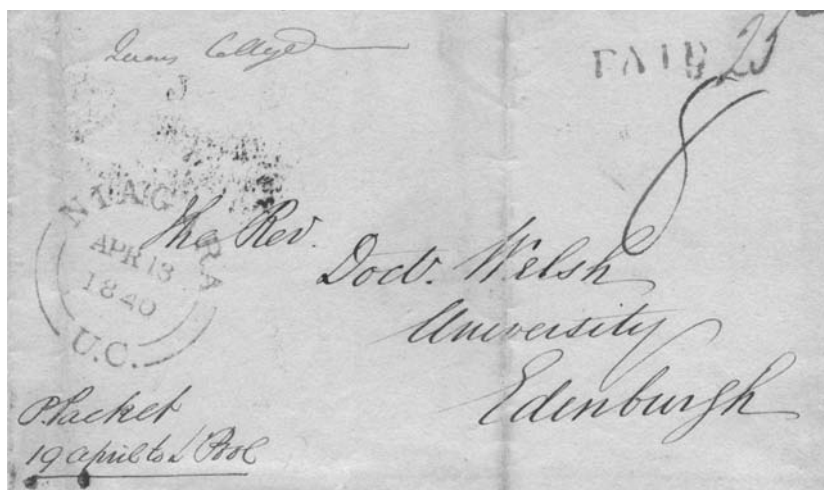 Queens College
PAID 25
8
NIAGARA
APR 13
1840
U.C.
The Rev.
Doctr. Welsh
University
Edenburgh
P. Packet
19 april to L Pool